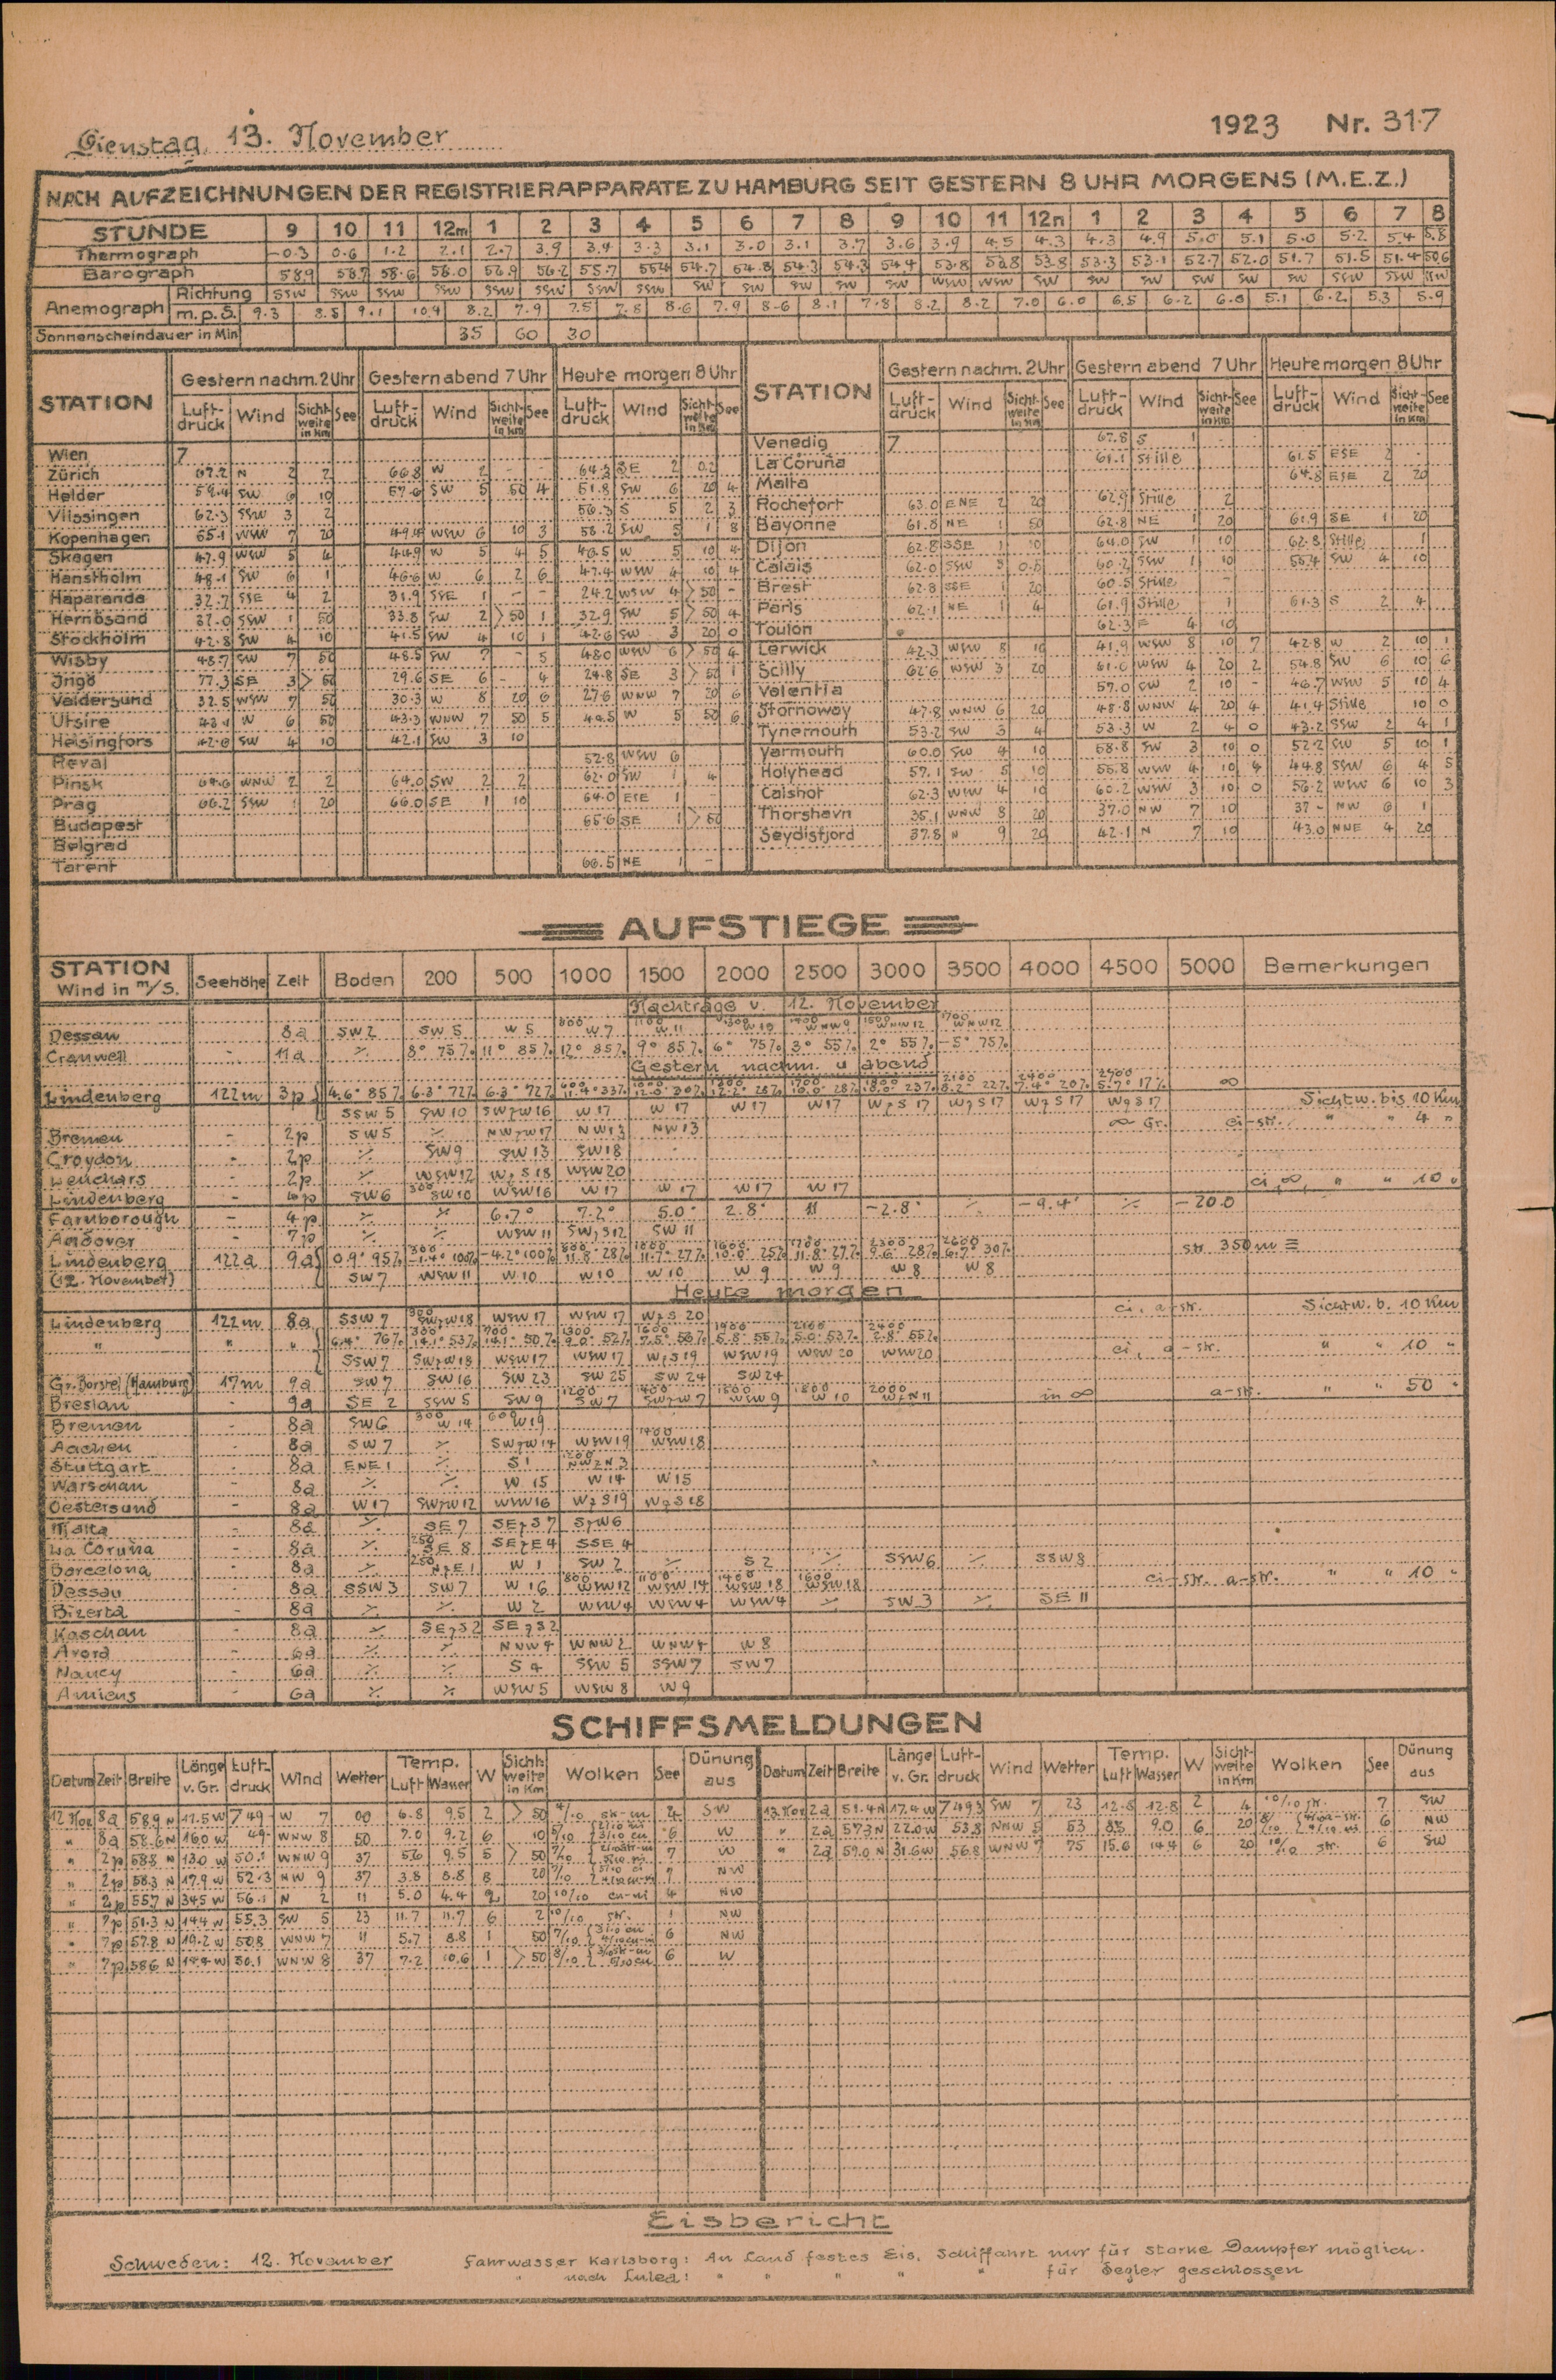 Dienstag, 13. November 1923 Nr. 317
NACH AUFZEICHNUNGEN DER REGISTRIERAPPARATE ZU HAMBURG SEIT GESTERN 8 UHR MORGENS (M.E.Z.)
STUNDE 9 10 11 12m 1 2 3 4 5 6 7 8 9 10 11 12n 1 2 3 4 5 6 7 8
Thermograph -0.3 0.6 1.2 2.1 2.7 3.9 3.4 3.3 3.1 3.0 3.1 3.7 3.6 3.9 4.5 4.3 4.3 4.9 5.0 5.1 5.0 5.2 5.4 5.8
Barograph 58.9 58.7 58.6 58.0 56.9 56.2 55.7 55.4 54.7 54.8 54.3 54.3 54.4 53.8 53.8 53.8 53.3 53.1 52.7 52.0 51.7 51.5 51.4 50.6
Anemograph Richtung SSW SSW SSW SSW SSW SSW SSW SSW SW SW SW SW SW WSW WSW SW SW SW SW SW SW SSW SSW SSW
m.p.S. 9.3 8.5 9.1 10.9 8.2 7.9 7.5 7.8 8.6 7.9 8.6 8.1 7.8 8.2 8.2 7.0 6.0 6.5 6.2 6.0 5.1 6.2 5.3 5.9
Sonnenscheindauer in Min 35 60 30
STATION Gestern nachm. 2 Uhr Gestern abend 7 Uhr Heute morgen 8 Uhr STATION Gestern nachm. 2 Uhr Gestern abend 7 Uhr Heute morgen 8 Uhr
Luftdruck Wind Sichtweite in Km See Luftdruck Wind Sichtweite in Km See Luftdruck Wind Sichtweite in Km See Luftdruck Wind Sichtweite in Km See Luftdruck Wind Sichtweite in Km See Luftdruck Wind Sichtweite in Km See
Wien 7 Venedig 7 67.8 S 1
Zürich 67.2 N 2 2 66.8 W 2 - - 64.3 SE 2 0.2 La Coruña 61.1 Stille 61.5 ESE 2 -
Helder 59.4 SW 6 10 57.6 SW 5 50 4 51.8 SW 6 20 4 Malta 64.8 ESE 2 20
Vlissingen 62.3 SSW 3 2 56.3 S 5 2 3 Rochefort 63.0 ENE 2 20 62.9 Stille 2
Kopenhagen 55.1 WSW 7 20 49.4 WSW 6 10 3 Bayonne 61.8 NE 1 50 62.8 NE 1 20 61.9 SE 1 20
Skagen 47.9 WSW 5 4 44.9 W 5 4 5 46.5 W 5 10 4 Dijon 62.8 SSE 1 10 64.0 SW 1 10 62.8 Stille 1
Hanstholm 48.1 SW 6 1 46.6 W 6 2 6 47.4 WSW 4 10 4 Calais 62.0 SSW 3 60.2 SSW 1 10 SW 4 10
Haparanda 32.7 SSE 4 2 31.9 SSE 1 - - 24.2 WSW 4 >50 - Brest 62.8 SSE 1 20 60.5 Stille -
Hernösand 37.0 SSW 1 50 33.8 SW 2 >50 1 32.9 SW 5 >50 4 Paris 62.1 NE 1 4 61.9 Stille 1 61.3 S 2 4
Stockholm 42.8 SW 4 10 41.5 SW 4 10 1 42.6 SW 3 20 0 Toulon 62.3 E 4 10
Wisby 48.7 SW 7 50 48.5 SW 7 - 5 48.0 WSW 6 >50 4 Lerwick 42.3 WSW 8 10 41.9 WSW 8 10 7 42.8 W 2 10 1
Ingö 77.3 SE 3 >50 29.6 SE 6 - 4 24.8 SE 3 >50 1 Scilly 62.6 WSW 3 20 61.0 WSW 4 20 2 54.8 SW 6 10 6
Valdersund 32.5 WSW 7 50 30.3 W 8 20 6 27.6 WNW 7 20 6 Valentia 57.0 SW 2 10 - 46.7 WSW 5 10 4
Utsire 43.1 W 6 50 43.3 WNW 7 50 5 44.5 W 5 50 6 Stornoway 47.8 WNW 6 20 48.8 WNW 4 20 4 41.4 Stille 10 0
Helsingfors 42.6 SW 4 10 42.1 SW 3 10 Tynemouth 53.2 SW 3 4 53.3 W 2 4 0 43.2 SSW 2 4 1
Reval 52.8 WSW 6 Yarmouth 60.0 SW 4 10 58.8 SW 3 10 0 52.2 SW 5 10 1
Pinsk 64.6 WNW 2 2 64.0 SW 2 2 62.0 SW 1 4 Holyhead 57.1 SW 5 10 55.8 WSW 4 10 4 44.8 SSW 6 4 5
Prag 66.2 SSW 1 20 66.0 SE 1 10 64.0 ESE 1 - Calshot 62.3 WSW 4 10 60.2 WSW 3 10 0 56.2 WSW 6 10 3
Budapest 65.6 SE 1 >50 Thorshavn 35.1 WNW 8 20 37.0 NW 7 10 37 - NW 6 1
Belgrad Seydisfjord 37.8 N 9 20 42.1 N 7 10 43.0 NNE 4 20
Tarent 66.5 NE 1 -
AUFSTIEGE
STATION Wind in m/S. Seehöhe Zeit Boden 200 500 1000 1500 2000 2500 3000 3500 4000 4500 5000 Bemerkungen
Nachträge v. 12. November
Dessau 8a SW 2 SW 5 W 5 800 W 7 1100 W 11 1300 W 10 1400 WNW 9 1500 WNW 12 1700 WNW 12
Cranwell - 11a ⁒ 8° 75% 11° 85% 12° 85% 9° 85% 6° 75% 3° 55% 2° 55% -5° 75%
Gestern nachm. u abend
Lindenberg 122m 3p 4.6° 85% 6.3° 72% 6.3° 72% 600 11.4° 33% 1000 12.0° 30% 1200 12.2° 28% 1700 10.0° 28% 1800 10.0° 23% 2100 8.2° 22% 2400 7.4° 20% 2900 5.7° 17% ∞
SSW 5 SW 10 SWzW 16 W 17 W 17 W 17 W 17 WzS 17 WzS 17 WzS 17 WzS 17 Sichtw. bis 10 Km
Bremen - 2p SW 5 ⁒ NWzW 17 NW 13 NW 13 ∞ Gr. ci-str. " " 4 "
Croydon - 2p ⁒ SW 9 SW 13 SW 18
Leuchars - 2p ⁒ WSW 12 WzS 18 WSW 20
Lindenberg - 6p SW 6 300 SW 10 WSW 16 W 17 W 17 W 17 W 17 ci, ∞, " " 10 "
Farnborough - 4p ⁒ ⁒ 6.7° 7.2° 5.0° 2.8° 11 -2.8° ⁒ -9.4° ⁒ -20.0
Andover - 7p ⁒ ⁒ WSW 11 SWzS 12 SW 11
Lindenberg 122a 9a 0.9° 95% 300 -1.4° 100% -4.2° 100% 800 11.8° 28% 1000 11.7° 27% 1600 10.0° 25% 1700 11.8° 27% 2300 9.6° 28% 2600 6.7° 30% str 350m ≡
(12. November) SW 7 WSW 11 W 10 W 10 W 10 W 9 W 9 W 8 W 8
Heute morgen
Lindenberg 122m 8a SSW 7 300 SWzW 18 WSW 17 WSW 17 WzS 20 ci, a-str. Sichtw. b. 10 Km
" " " 6.4° 76% 300 14.1° 53% 700 14.1° 50% 1300 9.0° 52% 1600 7.5° 56% 1900 5.8° 55% 2100 5.0° 53% 2400 2.8° 55%
SSW 7 SWzW 18 WSW 17 WSW 17 WzS 19 WSW 19 WSW 20 WSW 20 ci, a-str. " " 10 "
Gr. Borstel (Hamburg) 17m 9a SW 7 SW 16 SW 23 SW 25 SW 24 SW 24
Breslau - 9a SE 2 SSW 5 SW 9 1200 SW 7 SWzW 7 WSW 9 1800 W 10 2000 WzN 11 in ∞ a-str. " " 50 "
Bremen - 8a SW 6 300 W 14 600 W 19
Aachen - 8a SW 7 ⁒ SWzW 14 WSW 19 1400 WSW 18
Stuttgart - 8a ENE 1 ⁒ S 1 1200 NWzN 3
Warschau - 8a ⁒ ⁒ W 15 W 14 W 15
Oestersund - 8a W 17 SWzW 12 WSW 16 WzS 19 WzS 18
Malta - 8a ⁒ SE 7 SEzS 7 SzW 6
La Coruña - 8a ⁒ 250 SE 8 SEzE 4 SSE 4
Barcelona - 8a ⁒ 250 NzE 1 W 1 SW 2 ⁒ S 2 ⁒ SSW 6 ⁒ SSW 8
Dessau - 8a SSW 3 SW 7 W 16 800 WSW 12 1100 WSW 14 1400 WSW 18 1600 WSW 18 ci-str. a-str. " " 10 "
Bizerta - 8a ⁒ ⁒ W 2 WSW 4 WSW 4 WSW 4 ⁒ SW 3 ⁒ SE 11
Kaschau - 8a ⁒ SEzS 2 SEzS 2
Avord - 6a ⁒ ⁒ NNW 4 WNW 2 WNW 4 W 8
Nancy - 6a ⁒ ⁒ S 4 SSW 5 SSW 7 SW 7
Amiens - 6a ⁒ ⁒ WSW 5 WSW 8 W 9
SCHIFFSMELDUNGEN
Datum Zeit Breite Länge v. Gr. Luftdruck Wind Wetter Temp. Luft Wasser W Sichtweite in Km Wolken See Dünung aus Datum Zeit Breite Länge v. Gr. Luftdruck Wind Wetter Temp. Luft Wasser W Sichtweite in Km Wolken See Dünung aus
12 Nov 8a 58.9 N 11.5 W 7 49 - W 7 00 6.8 9.5 2 >50 4/10 sk-m 4 SW 13. Nov 2a 51.4 N 17.4 W 7 49.3 SW 7 23 12.8 12.8 2 4 10/10 str. 7 SW
" 8a 58.6 N 16.0 W 49 - WNW 8 50 7.0 9.2 6 10 6 W " 2a 57.3 N 22.0 W 53.8 NNW 5 53 9.0 6 20 6 NW
" 2p 58.8 N 13.0 W 50.1 WNW 9 37 5.6 9.5 5 >50 7 W " 2a 59.0 N 31.6 W 56.8 WNW 7 75 15.6 14.4 6 20 10/10 str. 6 SW
" 2p 58.3 N 17.9 W 52.3 NW 9 37 3.8 8.8 8 20 7 NW
" 2p 55.7 N 34.5 W 56.1 N 2 11 5.0 4.4 2 20 10/10 cu-ni 4 NW
" 7p 51.3 N 14.4 W 55.3 SW 5 23 11.7 11.7 6 2 10/10 str. 1 NW
" 7p 57.8 N 19.2 W 50.8 WNW 7 11 5.7 8.8 1 50 6 NW
" 7p 58.6 N 14.4 W 50.1 WNW 8 37 7.2 10.6 1 >50 6 W
Eisbericht
Schweden: 12. November Fahrwasser Karlsborg: An Land festes Eis, Schiffahrt nur für starke Dampfer möglich.
" nach Lulea: " " " " " für Segler geschlossen